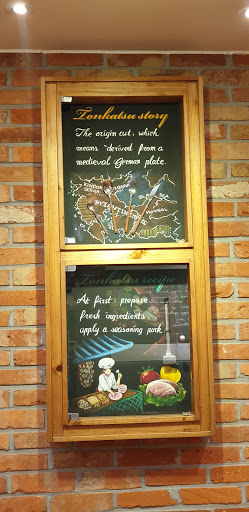 Tonkatsu story
The origin cut, which
means "derived from a
medieval German plate.
BYZANTINE
Tonkatsu recipe
At first : prepare
fresh ingredients,
apply a seasoning pork